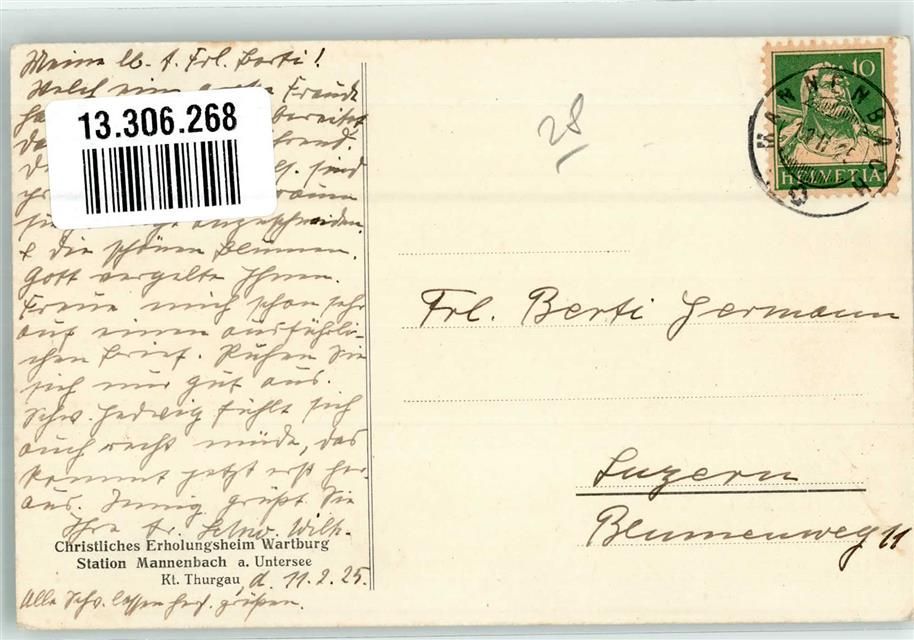 Meine lb. t. Frl. Berti!
Welch eine große Freude
bereitet
sind
anzuschneiden
& die schönen Blumen.
Gott vergelte Ihnen.
Freue mich schon sehr
auf einen ausführli-
chen Brief. Ruhen Sie
sich nur gut aus.
Schw. Hedwig fühlt sich
auch recht müde, das
kommt jetzt erst her-
aus. Innig grüßt Sie
Ihre tr. Schw. Wilh.
Christliches Erholungsheim Wartburg
Station Mannenbach a. Untersee
Kt. Thurgau, d. 11.2.25.
Alle Schw. lassen herzl. grüßen.
13.306.268
28
10
HELVETIA
MANNENBACH
Frl. Berti Germann
Luzern
Blumenweg 11